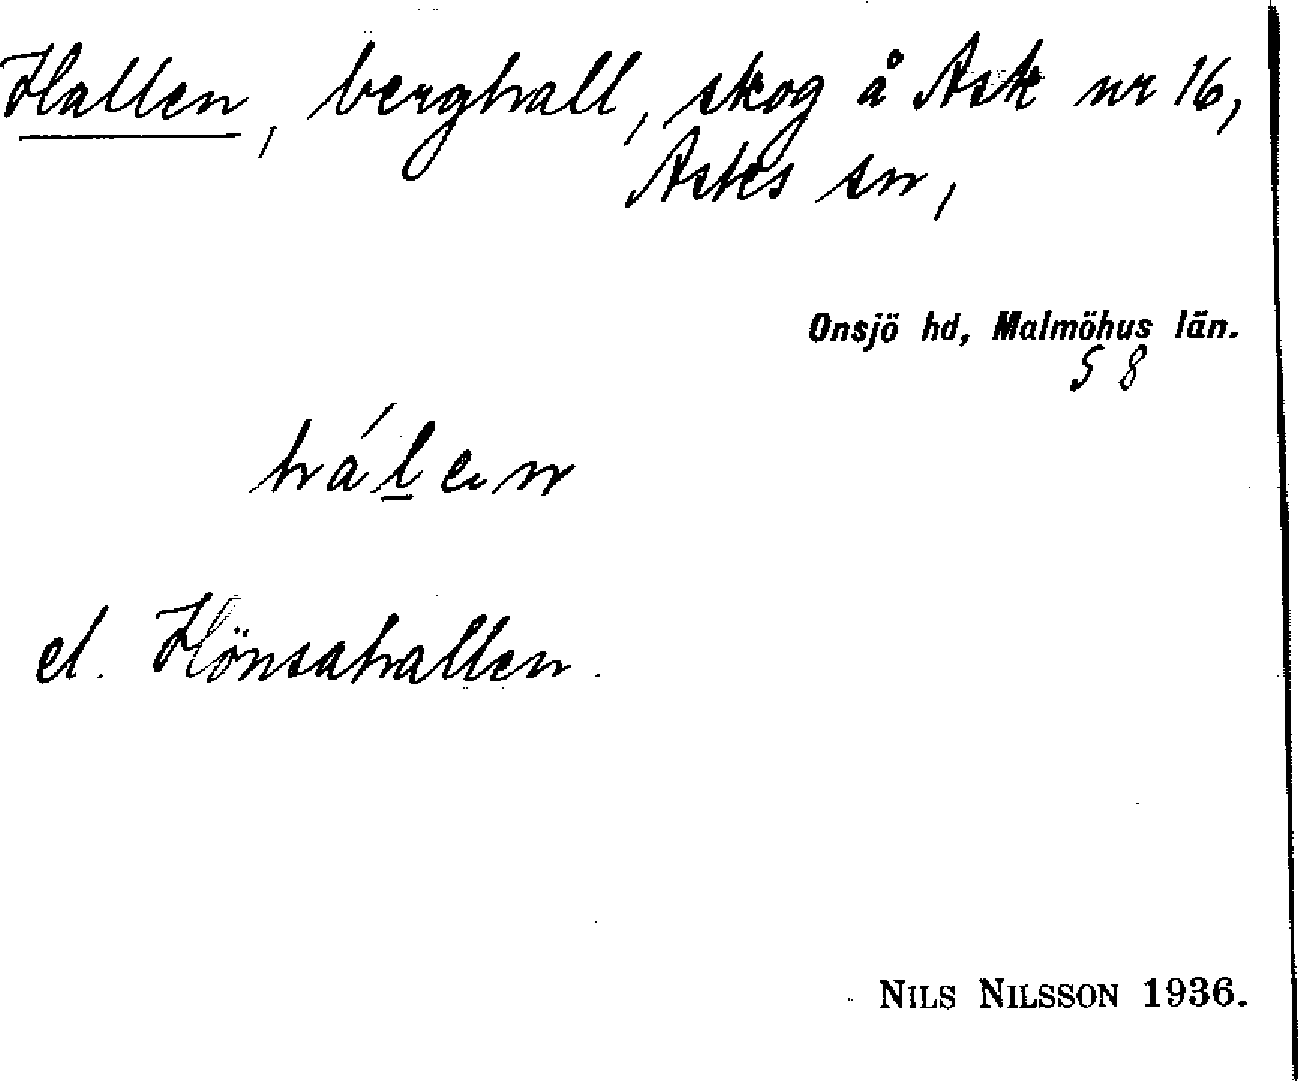 Hallen, berghall, skog å Ask nr 16,
Asks sn,
Onsjö hd, Malmöhus län.
S 8
há́len
el. Hönsahallen.
NILS NILSSON 1936.